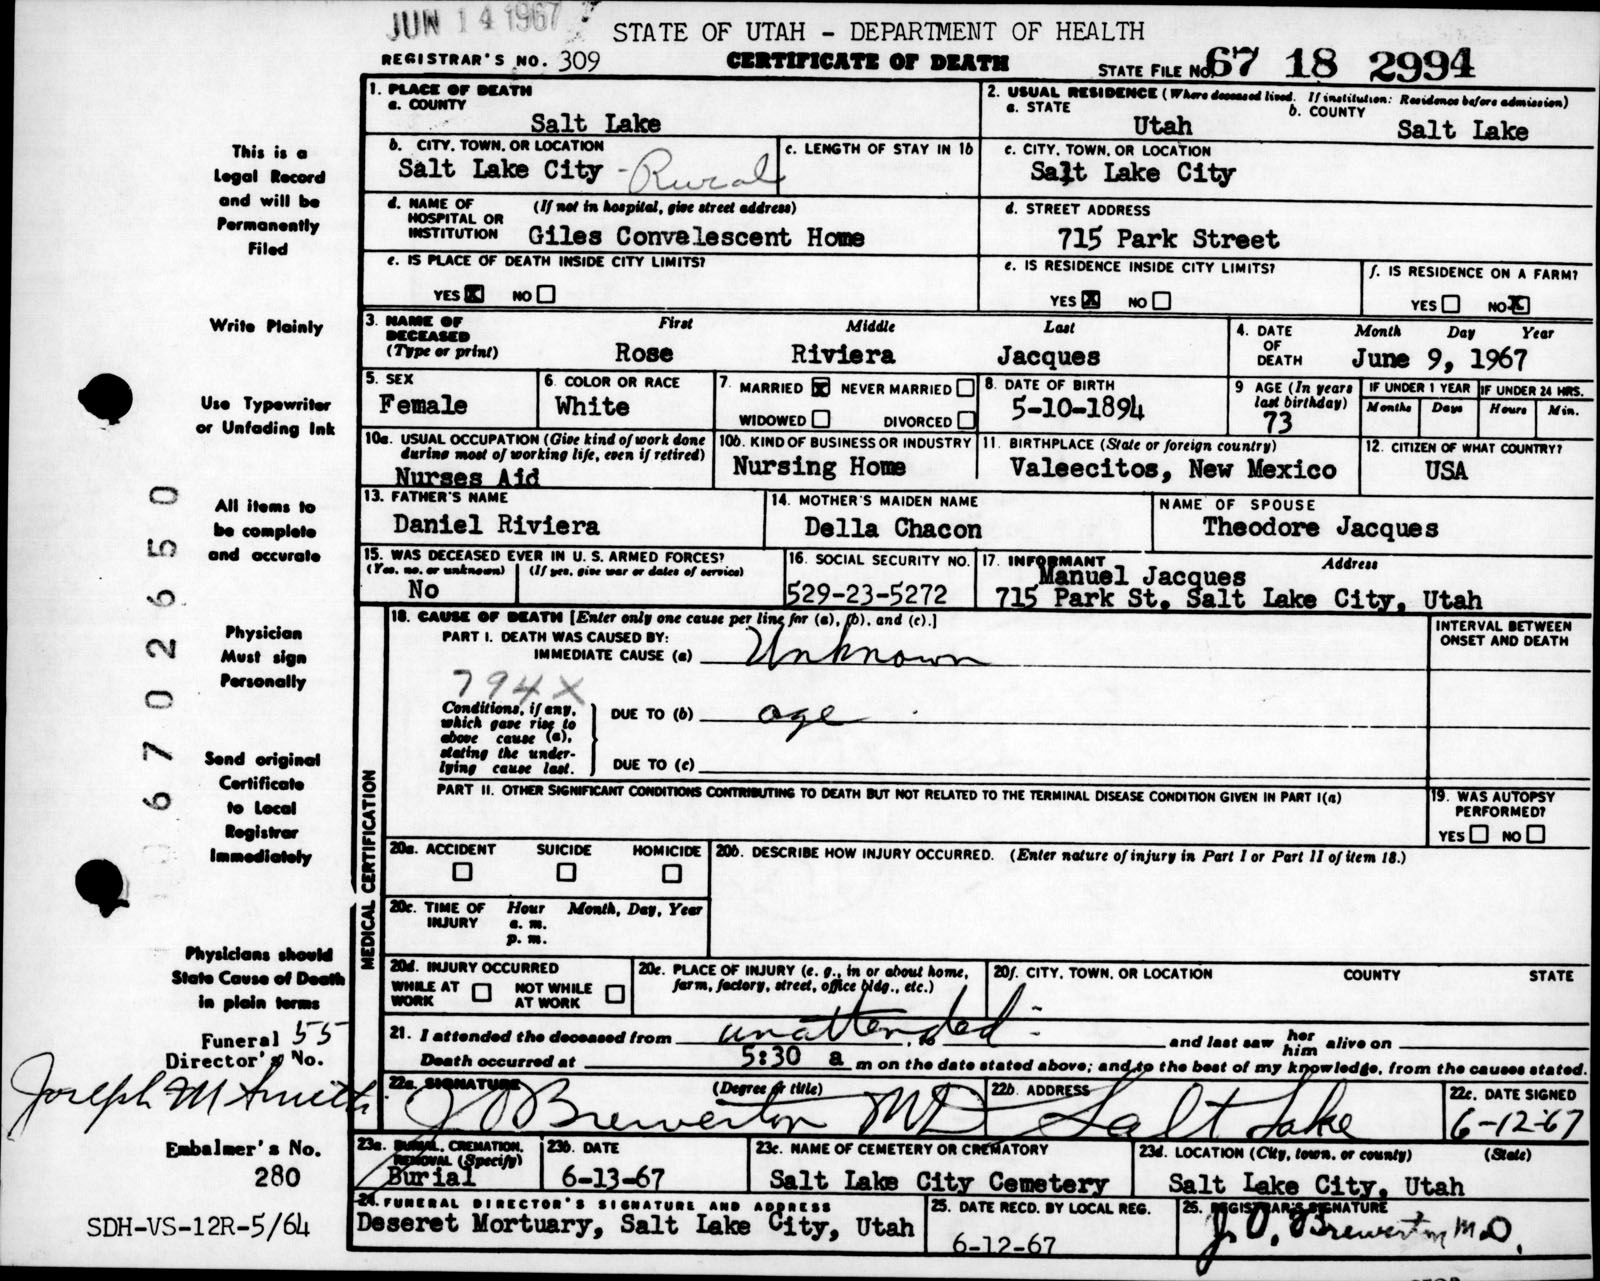 JUN 14 1967
STATE OF UTAH - DEPARTMENT OF HEALTH
REGISTRAR'S NO. 309
CERTIFICATE OF DEATH
STATE FILE NO. 67 18 2994
1. PLACE OF DEATH
a. COUNTY
Salt Lake
2. USUAL RESIDENCE (Where deceased lived. If institution: Residence before admission)
a. STATE
Utah
b. COUNTY
Salt Lake
b. CITY, TOWN, OR LOCATION
Salt Lake City - Rural
c. LENGTH OF STAY IN 1b
c. CITY, TOWN, OR LOCATION
Salt Lake City
d. NAME OF HOSPITAL OR INSTITUTION
(If not in hospital, give street address)
Giles Convalescent Home
d. STREET ADDRESS
715 Park Street
e. IS PLACE OF DEATH INSIDE CITY LIMITS?
YES X NO
e. IS RESIDENCE INSIDE CITY LIMITS?
YES X NO
f. IS RESIDENCE ON A FARM?
YES NO X
3. NAME OF DECEASED
(Type or print)
First Middle Last
Rose Riviera Jacques
4. DATE OF DEATH
Month Day Year
June 9, 1967
5. SEX
Female
6. COLOR OR RACE
White
7. MARRIED X NEVER MARRIED
WIDOWED DIVORCED
8. DATE OF BIRTH
5-10-1894
9 AGE (In years last birthday)
73
IF UNDER 1 YEAR
Months Days
IF UNDER 24 HRS.
Hours Min.
10a. USUAL OCCUPATION (Give kind of work done during most of working life, even if retired)
Nurses Aid
10b. KIND OF BUSINESS OR INDUSTRY
Nursing Home
11. BIRTHPLACE (State or foreign country)
Valeecitos, New Mexico
12. CITIZEN OF WHAT COUNTRY?
USA
13. FATHER'S NAME
Daniel Riviera
14. MOTHER'S MAIDEN NAME
Della Chacon
NAME OF SPOUSE
Theodore Jacques
15. WAS DECEASED EVER IN U. S. ARMED FORCES?
(Yes, no, or unknown) (If yes, give war or dates of service)
No
16. SOCIAL SECURITY NO.
529-23-5272
17. INFORMANT Address
Manuel Jacques
715 Park St. Salt Lake City, Utah
MEDICAL CERTIFICATION
18. CAUSE OF DEATH [Enter only one cause per line for (a), (b), and (c).]
PART I. DEATH WAS CAUSED BY:
IMMEDIATE CAUSE (a) Unknown
INTERVAL BETWEEN ONSET AND DEATH
794X
Conditions, if any, which gave rise to above cause (a), stating the underlying cause last.
DUE TO (b) age
DUE TO (c)
PART II. OTHER SIGNIFICANT CONDITIONS CONTRIBUTING TO DEATH BUT NOT RELATED TO THE TERMINAL DISEASE CONDITION GIVEN IN PART I(a)
19. WAS AUTOPSY PERFORMED?
YES NO
20a. ACCIDENT SUICIDE HOMICIDE
20b. DESCRIBE HOW INJURY OCCURRED. (Enter nature of injury in Part I or Part II of item 18.)
20c. TIME OF INJURY
Hour Month, Day, Year
a. m.
p. m.
20d. INJURY OCCURRED
WHILE AT WORK NOT WHILE AT WORK
20e. PLACE OF INJURY (e. g., in or about home, farm, factory, street, office bldg., etc.)
20f. CITY, TOWN, OR LOCATION COUNTY STATE
21. I attended the deceased from unattended to and last saw her him alive on
Death occurred at 5:30 a m on the date stated above; and to the best of my knowledge, from the causes stated.
22a. SIGNATURE (Degree or title)
J O Brewerton MD
22b. ADDRESS
Salt Lake
22c. DATE SIGNED
6-12-67
23a. BURIAL, CREMATION, REMOVAL (Specify)
Burial
23b. DATE
6-13-67
23c. NAME OF CEMETERY OR CREMATORY
Salt Lake City Cemetery
23d. LOCATION (City, town, or county) (State)
Salt Lake City, Utah
24. FUNERAL DIRECTOR'S SIGNATURE AND ADDRESS
Deseret Mortuary, Salt Lake City, Utah
25. DATE RECD. BY LOCAL REG.
6-12-67
26. REGISTRAR'S SIGNATURE
J. O. Brewerton M.D.
This is a
Legal Record
and will be
Permanently
Filed
Write Plainly
Use Typewriter
or Unfading Ink
All items to
be complete
and accurate
Physician
Must sign
Personally
Send original
Certificate
to Local
Registrar
Immediately
Physicians should
State Cause of Death
in plain terms
Funeral 55
Director's No.
Joseph M Smith
Embalmer's No.
280
SDH-VS-12R-5/64
67 02650